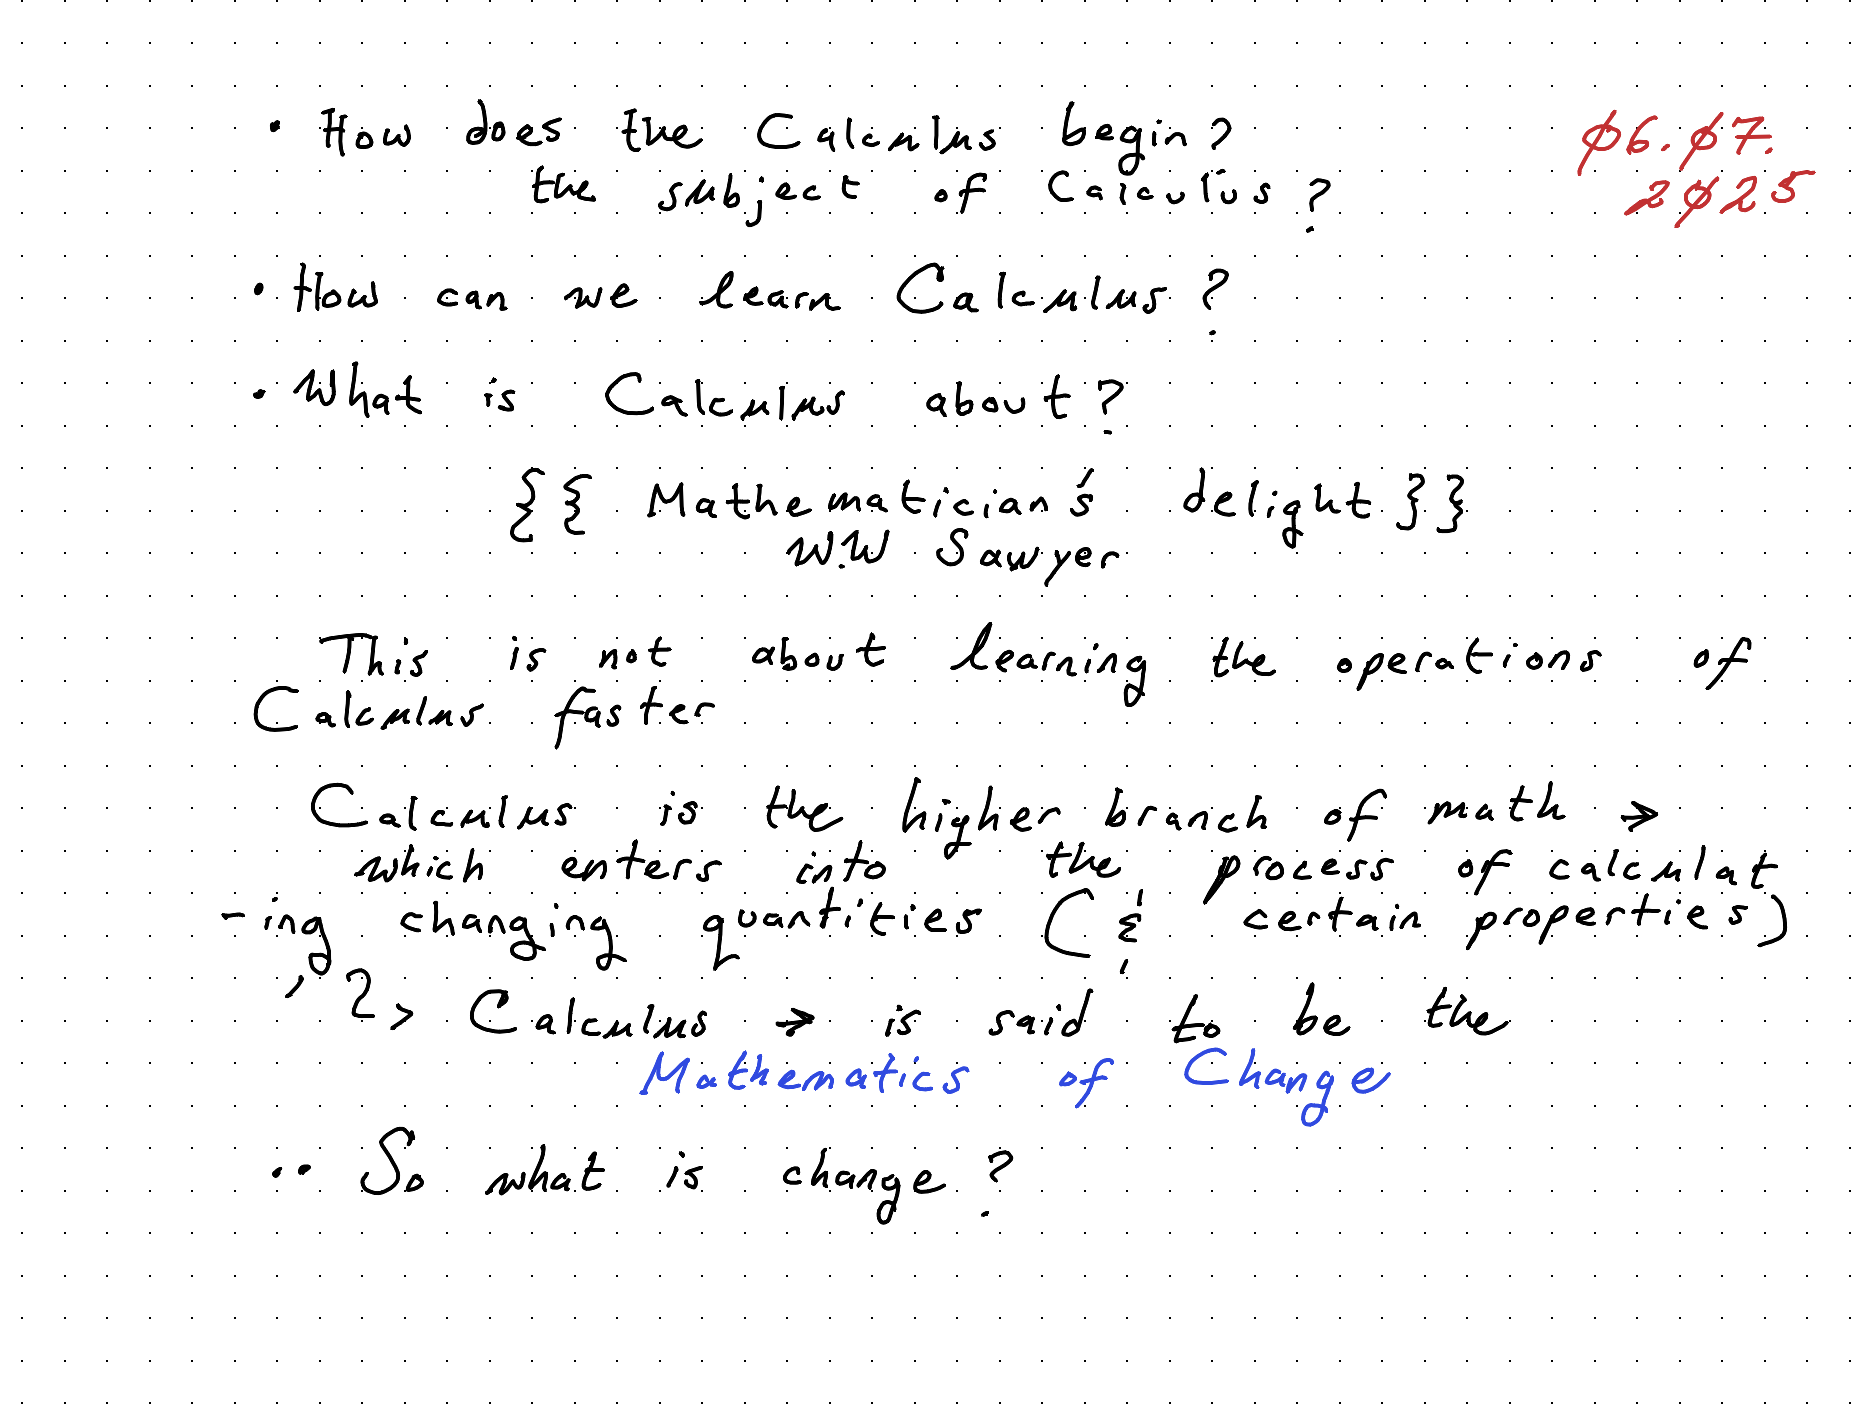 • How does the Calculus begin?
the subject of Calculus?
ø6.ø7.
2ø25
• How can we learn Calculus?
• What is Calculus about?
{{ Mathematician's delight }}
W.W Sawyer
This is not about learning the operations of
Calculus faster
Calculus is the higher branch of math →
which enters into the process of calculat
-ing changing quantities (& certain properties)
> Calculus → is said to be the
Mathematics of Change
•• So what is change?